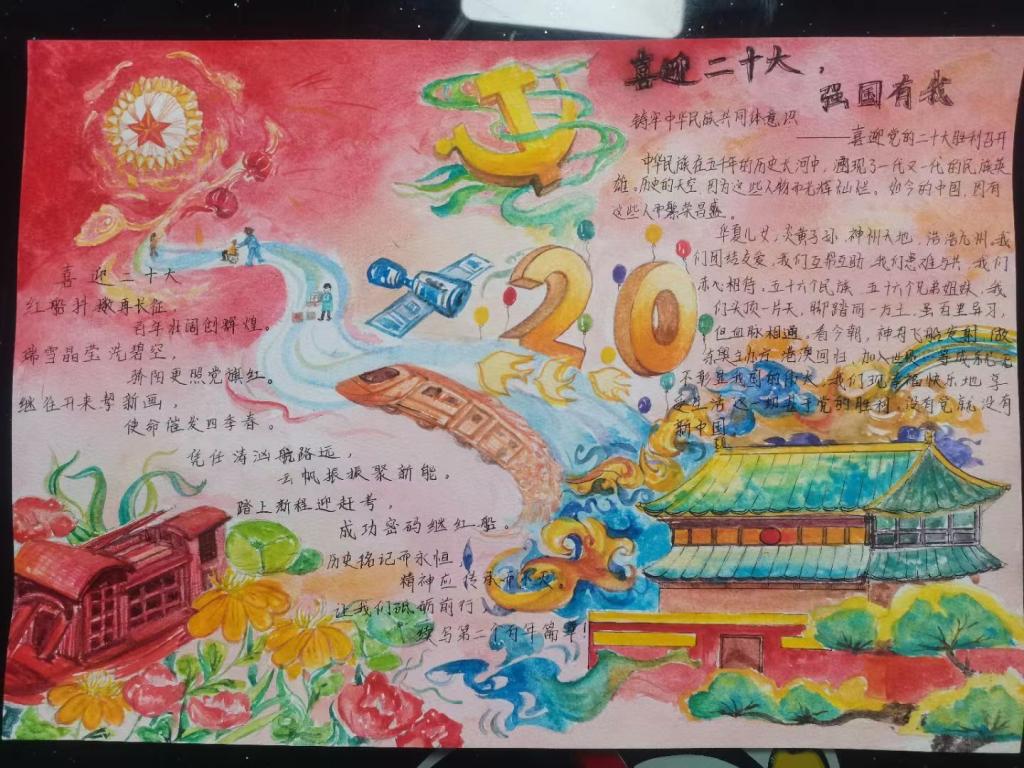 喜迎二十大，
强国有我
铸牢中华民族共同体意识
——喜迎党的二十大胜利召开
中华民族在五千年的历史长河中，涌现了一代又一代的民族英
雄。历史的天空，因为这些人物而光辉灿烂。如今的中国，因有
这些人而繁荣昌盛。
华夏儿女，炎黄子孙，神州大地，浩浩九州。我
们团结友爱，我们互帮互助，我们患难与共，我们
赤心相待，五十六个民族，五十六个兄弟姐妹，我
们头顶一片天，脚踏同一方土，虽百里异习，
但血脉相通。看今朝，神舟飞船发射
港澳回归，加入世
不彰显我国的伟大，我们现幸福快乐地享
生活，这一切基于党的胜利，没有党就没有
新中国。
20
喜迎二十大
红船抖擞再长征，
百年壮阔创辉煌。
瑞雪晶莹洗碧空，
骄阳更照党旗红。
继往开来挚新画，
使命催发四季春。
凭任涛汹航路远，
云帆振振聚新能。
踏上新程迎赶考，
成功密码继红船。
历史铭记而永恒，
精神应传承而不灭，
让我们砥砺前行，
续写第二个百年篇章！